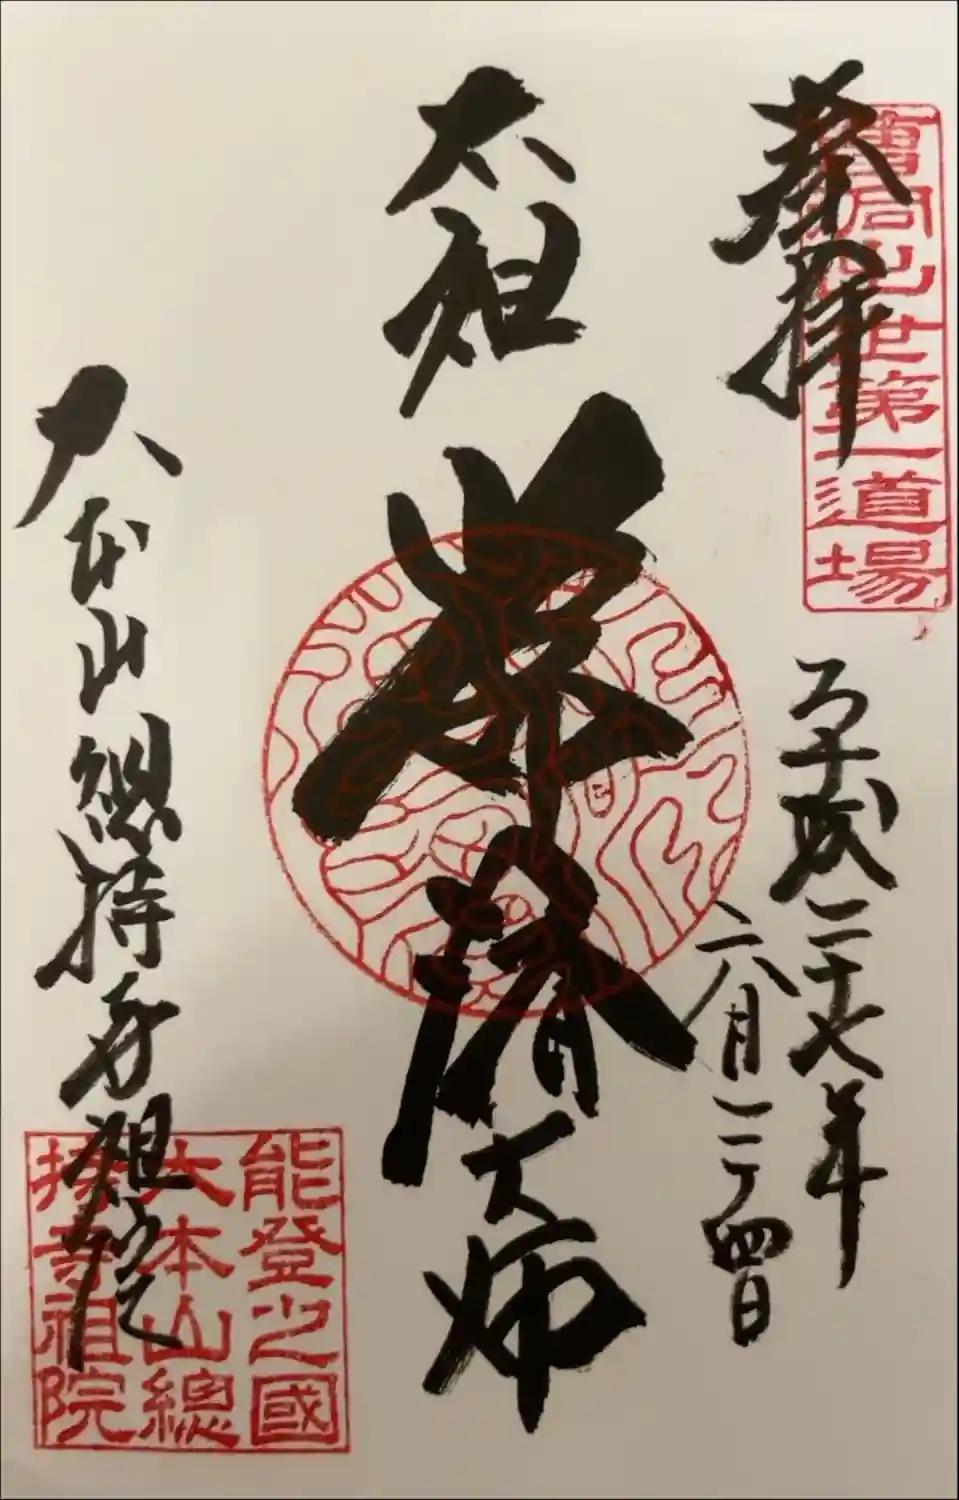 奉拝
曹洞出世第一道場
平成二十七年
六月二十四日
太祖
常済
大師
大本山總持寺祖院
能登之國
大本山總
持寺祖院